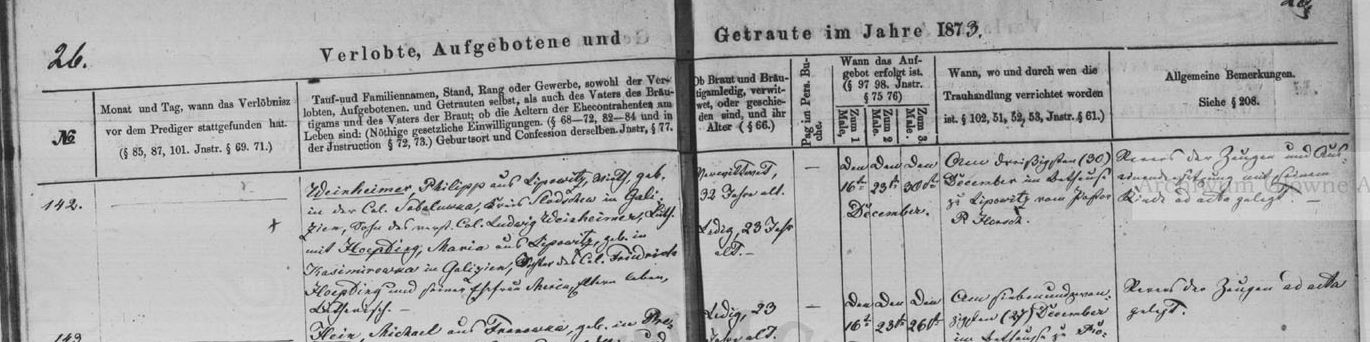 26.
Verlobte, Aufgebotene und
Getraute im Jahre 1873.
№
Monat und Tag, wann das Verlöbnisz
vor dem Prediger stattgefunden hat.
(§ 85, 87, 101. Jnstr. § 69. 71.)
Tauf-und Familiennamen, Stand, Rang oder Gewerbe, sowohl der Ver-
lobten, Aufgebotenen, und Getrauten selbst, als auch des Vaters des Bräu-
tigams und des Vaters der Braut; ob die Aeltern der Ehecontrahenten am
Leben sind: (Nöthige gesetzliche Einwilligungen. (§ 68—72, 82—84 und in
der Jnstruction § 72, 73.) Geburtsort und Confession derselben. Jnstr, § 77.
Ob Braut und Bräu-
tigam ledig, verwit-
wet, oder geschie-
den sind, und ihr
Alter (§ 66.)
Pag im Pers. Bu-
che.
Wann das Auf-
gebot erfolgt ist.
(§ 97 98. Jnstr.
§ 75 76)
Zum 1 Male,
Zum 2 Male,
Zum 3. Male.
Wann, wo und durch wen die
Trauhandlung verrichtet worden
ist. § 102, 51, 52, 53, Jnstr. § 61.)
Allgemeine Bemerkungen.
Siehe § 208.
142.
Weinheimer, Philipp aus Lipowitz, geb.
in der Col. in Gali-
zien, Sohn des verst. Col. Ludwig Weinheimer, Luth.
mit Hoepding, Maria aus Lipowitz, geb. in
Kasimirowka in Galizien, Tochter des Col. Friedrich
Hoepding und seiner Ehefrau Aeltern leben,
Lutherisch. —
Verwittwet,
32 Jahr alt.
Ledig, 23 Jahr
alt. —
—
Den Den Den
16ten 23ten 30ten
December.
Am dreißigsten (30)
December im Bethause
zu Lipowitz vom Pastor
Revers der Zeugen und Aus-
einandersetzung mit seinem
Kinde ad acta gelegt. —
Archiwum Główne A
143.
Hein, Michael aus geb. in
Ledig, 23
Jahr alt.
—
Den Den Den
16ten 23ten 26ten
Am siebenundzwan-
zigsten (27) December
im Bethause zu
Revers der Zeugen ad acta
gelegt.